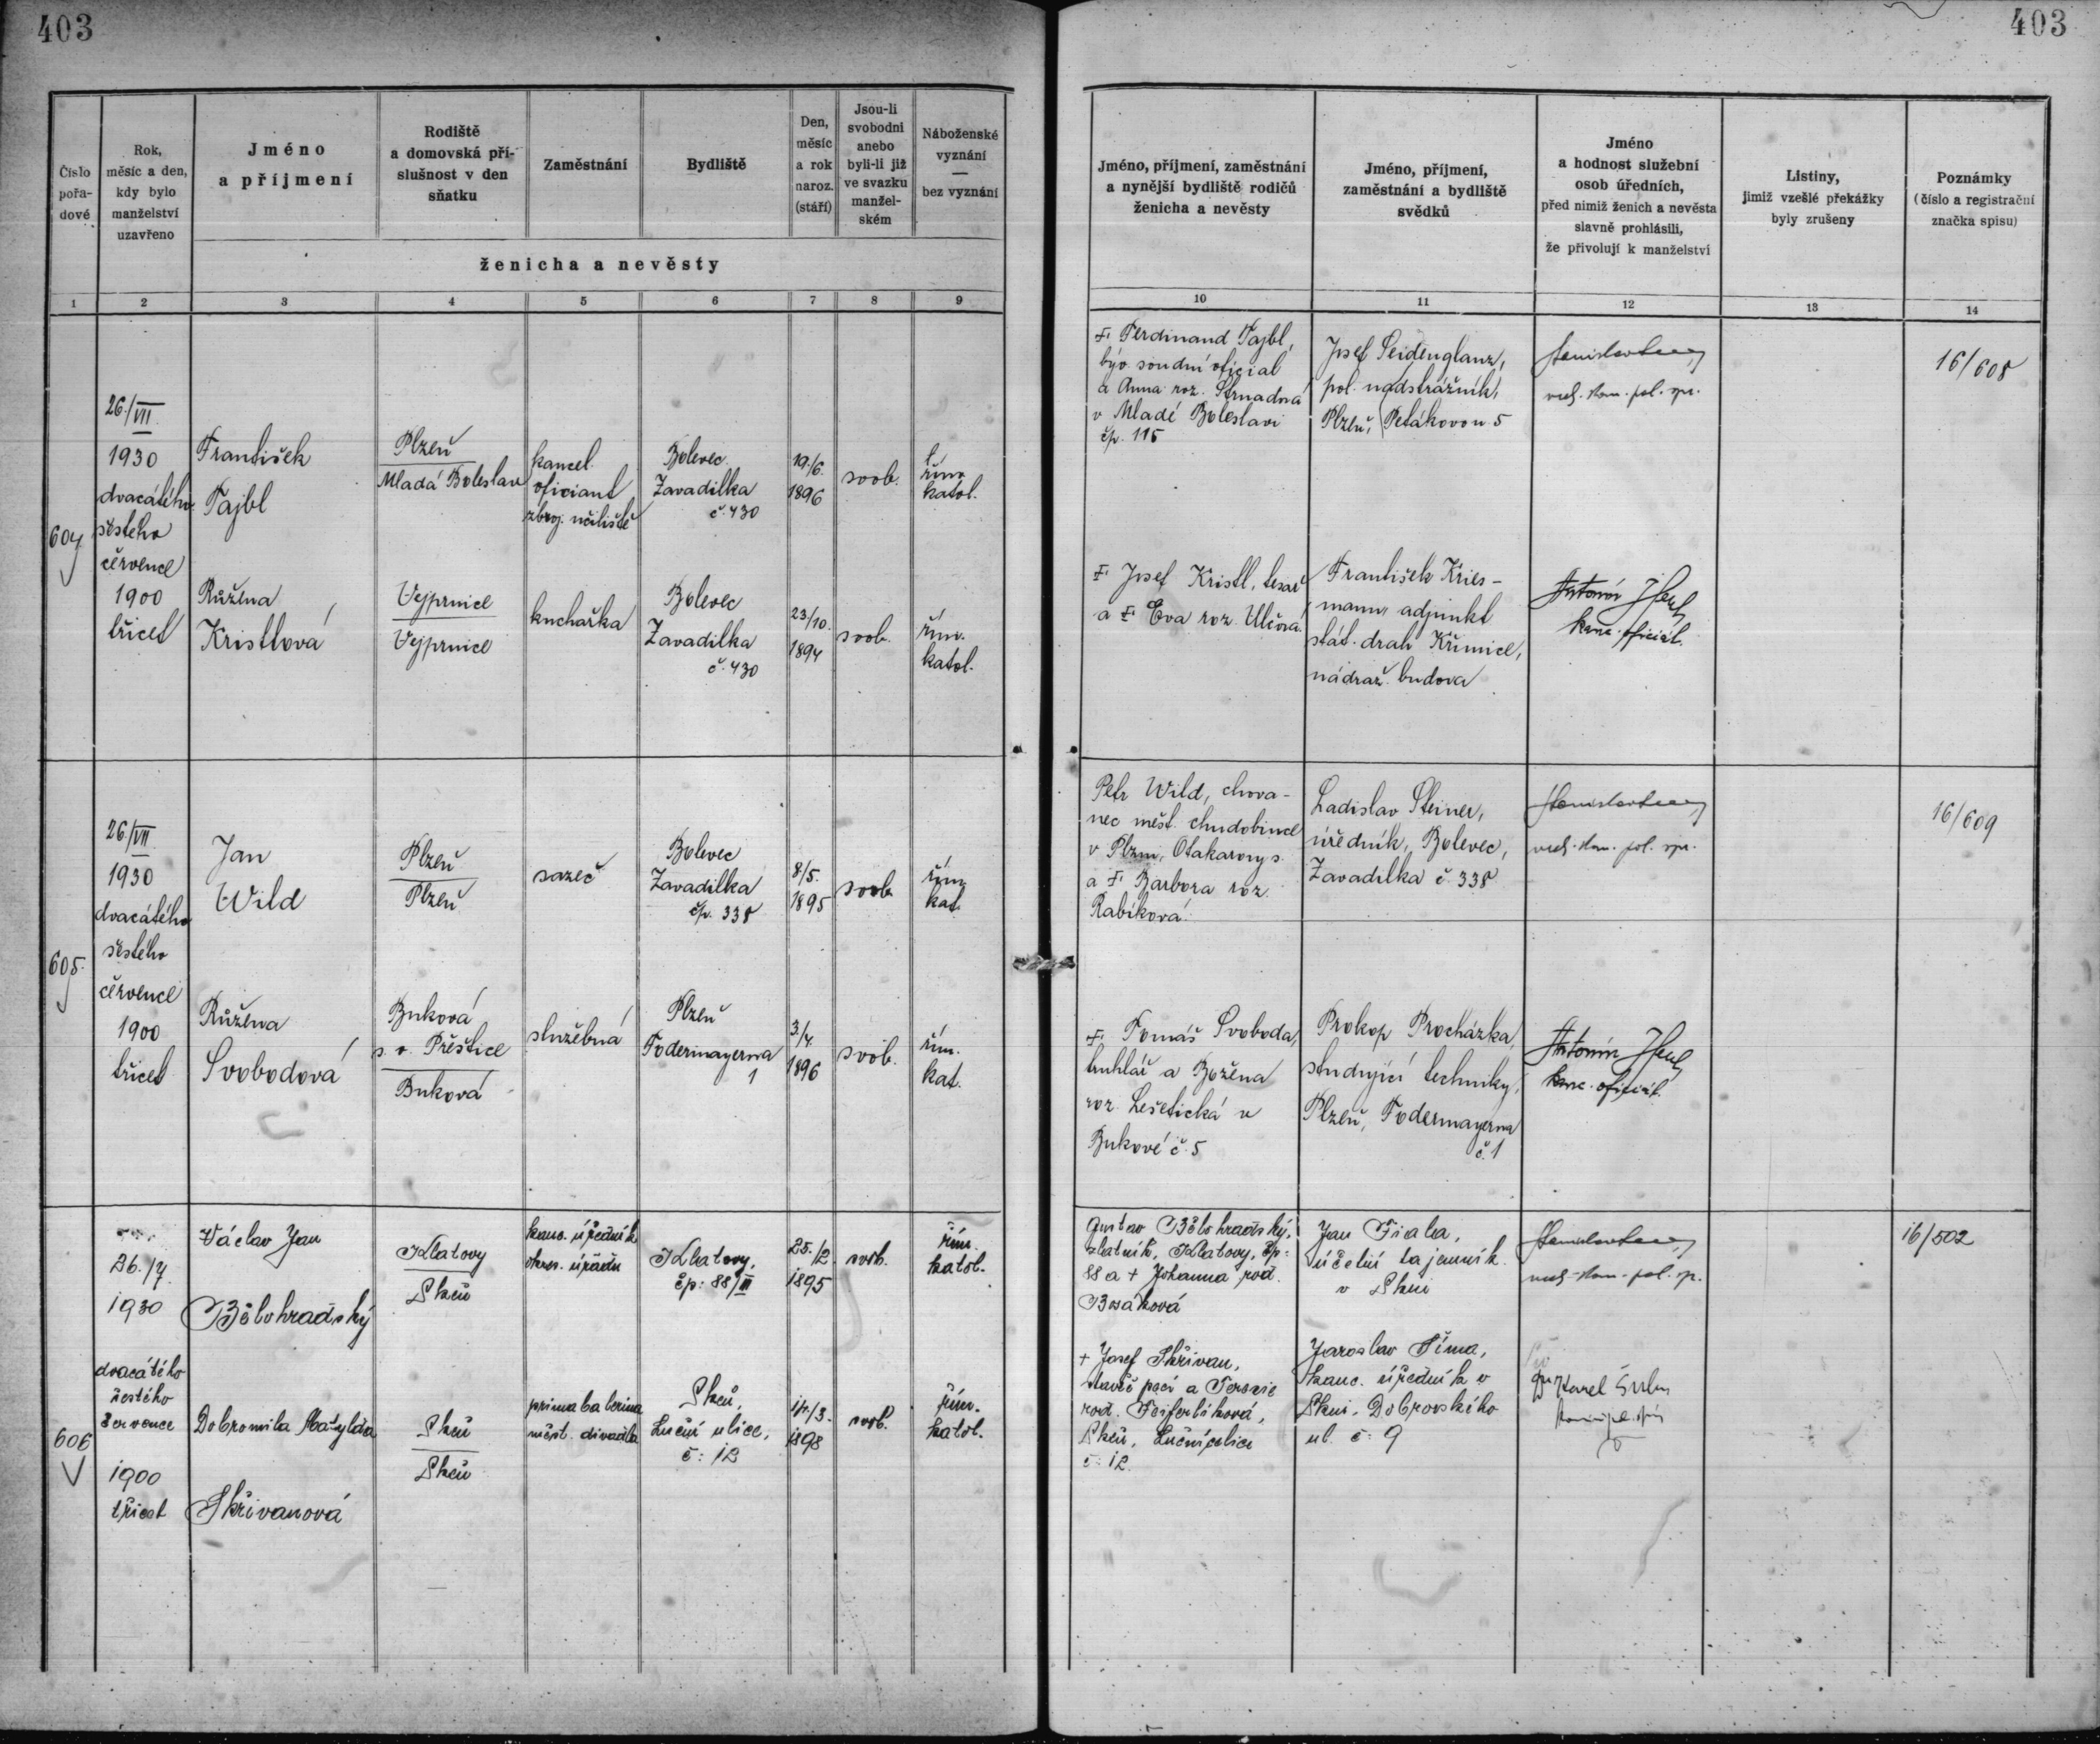 403
403
Číslo pořadové
Rok, měsíc a den, kdy bylo manželství uzavřeno
Jméno a příjmení
Rodiště a domovská příslušnost v den sňatku
Zaměstnání
Bydliště
Den, měsíc a rok naroz. (stáří)
Jsou-li svobodni anebo byli-li již ve svazku manželském
Náboženské vyznání — bez vyznání
ženicha a nevěsty
Jméno, příjmení, zaměstnání a nynější bydliště rodičů ženicha a nevěsty
Jméno, příjmení, zaměstnání a bydliště svědků
Jméno a hodnost služební osob úředních, před nimiž ženich a nevěsta slavně prohlásili, že přivolují k manželství
Listiny, jimiž vzešlé překážky byly zrušeny
Poznámky (číslo a registrační značka spisu)
1 2 3 4 5 6 7 8 9 10 11 12 13 14
604
26./VII.
1930
dvacátého
šestého
července
1900
třicet
František
Tajbl
Plzeň
Mladá Boleslav
kancel.
oficiant
zbroj. učiliště
Bolevec
Zavadilka
č. 430
19./6.
1896
svob.
řím.
katol.
Ferdinand Tajbl,
býv. soudní oficial
a Anna roz. Strnadová
v Mladé Boleslavi
čp. 115
Josef Seidenglanz,
pol. nadstrážník,
Plzeň, Petákovou 5
16/608
Růžena
Kristlová
Vejprnice
Vejprnice
kuchařka
Bolevec
Zavadilka
č. 430
23/10.
1894
svob.
řím.
katol.
Josef Kristl, tesař
a Eva roz. Ulčová.
František Kries-
mann, adjunkt
stát. drah Křimice,
nádraž. budova
Antonín
kanc. oficiál.
605.
26/VII
1930
dvacátého
šestého
července
1900
třicet
Jan
Wild
Plzeň
Plzeň
sazeč
Bolevec
Zavadilka
čp. 338
8/5.
1895
svob.
řím.
kat.
Petr Wild, chova-
nec měst. chudobince
v Plzni, Otakarovy s.
a Barbora roz.
Rabíková.
Ladislav Steiner,
úředník, Bolevec,
Zavadilka č. 338
16/609
Růžena
Svobodová
Buková
s. o. Přeštice
Buková
služebná
Plzeň
Fodermayerova
1
3./4.
1896
svob.
řím.
kat.
Tomáš Svoboda,
truhlář a Božena
roz. Lešetická v
Bukové č. 5
Prokop Procházka,
studující techniky,
Plzeň, Fodermayerova
č. 1
Antonín
kanc. oficiál.
606
26./7.
1930
dvacátého
šestého
července
1900
třicet
Václav Jan
Bělohradský
Klatovy
Plzeň
kanc. úředník
okres. úřadu
Klatovy,
čp: 88/II
25./2.
1895
svob.
řím.
katol.
Gustav Bělohradský,
zlatník, Klatovy, čp:
88 a + Johanna rod.
Bosáková
Jan Fiala,
účetní tajemník
v Plzni
16/502
Dobromila Matylda
Skřivanová
Plzeň
Plzeň
primabalerina
měst. divadla
Plzeň,
Luční ulice,
č: 12
1898
svob.
řím.
katol.
+ Josef Skřivan,
stavěč pecí a Terezie
rod. Fajferlíková,
Plzeň, Luční ulice
č: 12.
Jaroslav Šíma,
kanc. úředník v
Plzni, Dobrovského
ul. č: 9
Karel